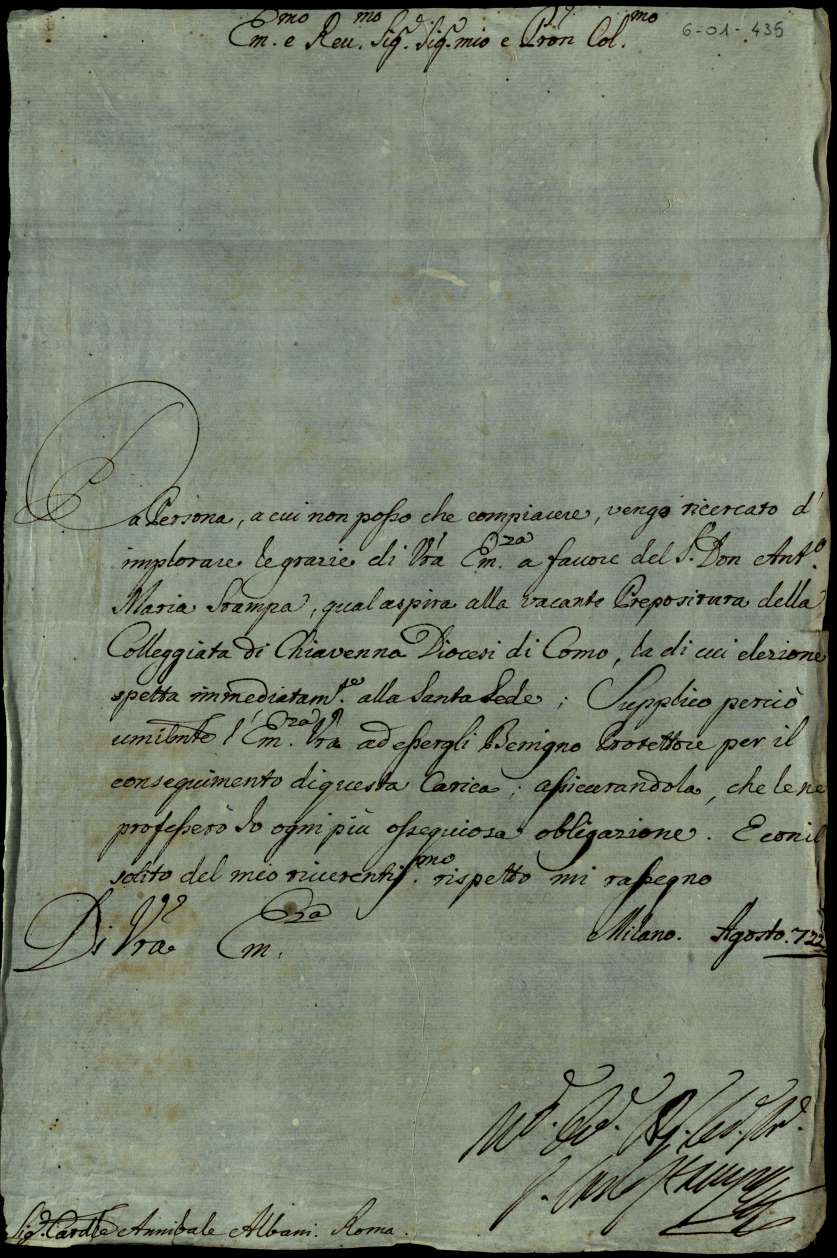 Em.mo e Reu.mo Sig.r Sig.r mio e Pron Col.mo
6-01-435
Da Persona, a cui non posso che compiacere, vengo ricercato d'
implorare le grazie di Vra Em.za a fauore del S.r Don Ant.o
Maria Stampa, qual aspira alla vacante Prepositura della
Colleggiata di Chiavenna Diocesi di Como, la di cui elezione
spetta immediatam.te alla Santa Sede; Supplico perciò
umilmte l'Em.za Vra ad essergli Benigno Protettore per il
conseguimento di questa Carica; assicurandola, che le ne
professerò Io ogni più ossequiosa obligazione. E con il
solito del mio riuerentis.mo rispetto mi rassegno
Di Vra Em.za
Milano. Agosto. 722
Sig.r Cardle Annibale Albani. Roma.